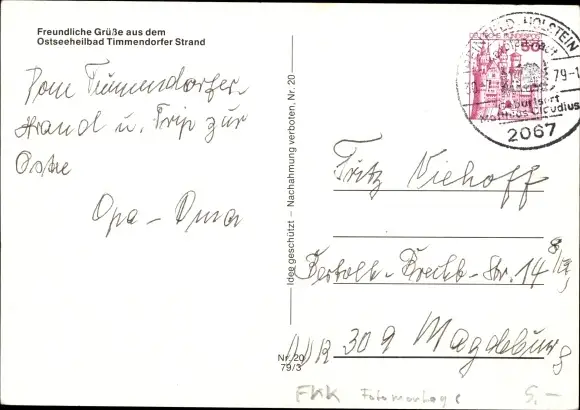 Freundliche Grüße aus dem
Ostseeheilbad Timmendorfer Strand
Vom Timmendorfer-
strand u. Trip zur
Ostse
Opa - Oma
Idee geschützt – Nachahmung verboten, Nr. 20
Nr. 20
79/3
HOLSTEIN
DEUTSCHE BUNDESPOST
50
79-1
Geburtsort
Matthias Claudius
2067
Fritz Viehoff
Bertolt-Brecht-Str. 14
DDR 309 Magdeburg
FKK Fotomontage 5,-